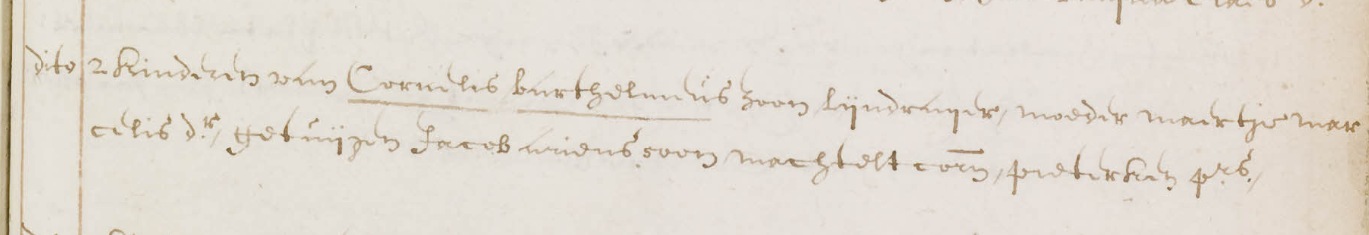 dito 2 kinderen van Cornelis barthelmeus zoon lijndraijer, moeder maertje mar
celis dr, getuijgen Jacob ariens soon machtelt corn, pieterken prs,